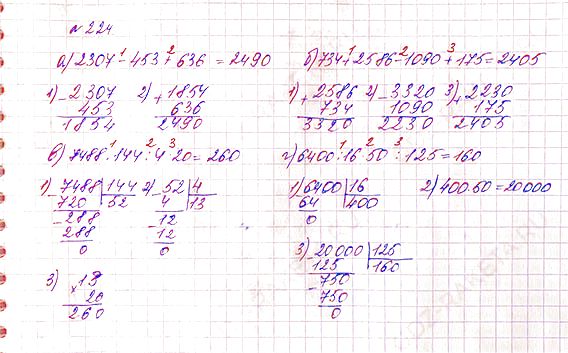 № 224
а) 2307 - 453 + 636 = 2490
1) - 2307
453
1854
2) + 1854
636
2490
б) 734 + 2586 - 1090 + 175 = 2405
1) + 2586
734
3320
2) - 3320
1090
2230
3) + 2230
175
2405
в) 7488 : 144 : 4 · 20 = 260
1) - 7488 | 144
720 | 52
- 288
288
0
2) - 52 | 4
4 | 13
- 12
12
0
3) × 13
20
260
г) 6400 : 16 · 50 : 125 = 160
1) 6400 | 16
64 | 400
0
2) 400 · 50 = 20000
3) 20000 | 125
125 | 160
- 750
750
0